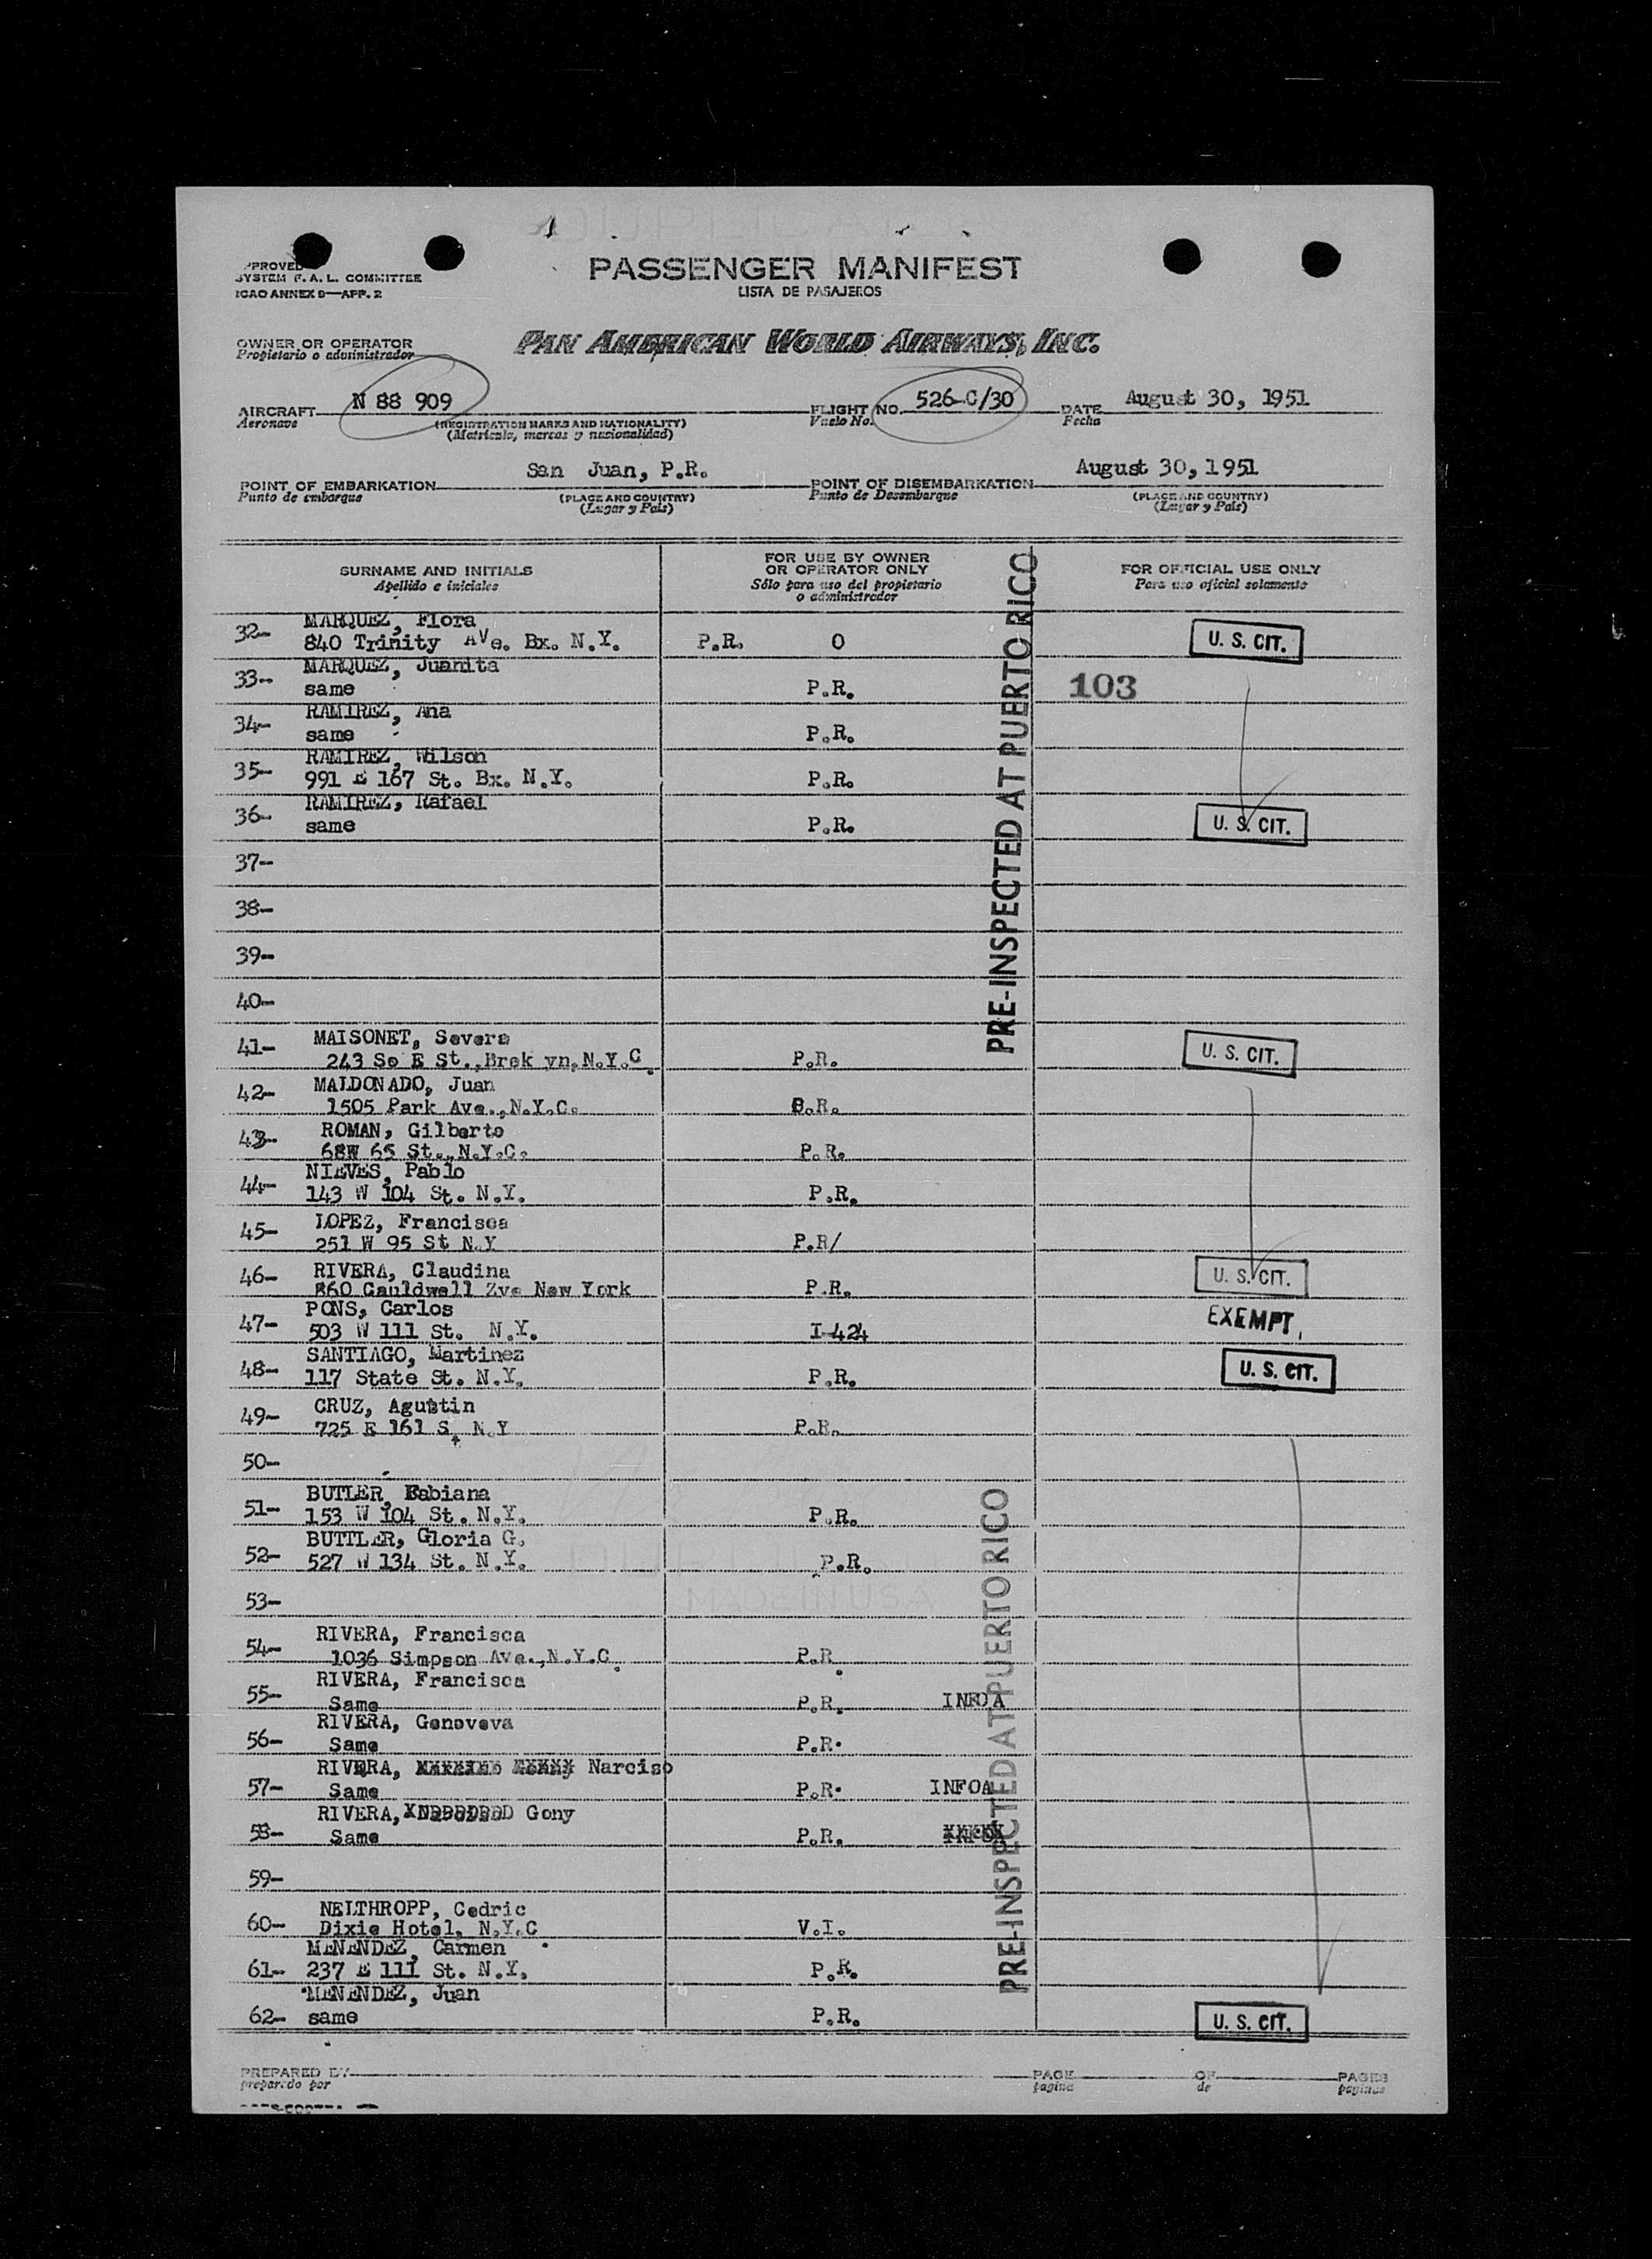 PPROVED
SYSTEM F. A. L. COMMITTEE
ICAO ANNEX 9—APP. 2
PASSENGER MANIFEST
LISTA DE PASAJEROS
OWNER OR OPERATOR
Propietario o administrador
PAN AMERICAN WORLD AIRWAYS, INC.
AIRCRAFT N 88 909
Aeronave
(REGISTRATION MARKS AND NATIONALITY)
(Matrícula, marcas y nacionalidad)
FLIGHT NO. 526-C/30
Vuelo No.
DATE August 30, 1951
Fecha
POINT OF EMBARKATION San Juan, P.R.
Punto de embarque
(PLACE AND COUNTRY)
(Lugar y País)
POINT OF DISEMBARKATION August 30, 1951
Punto de Desembarque
(PLACE AND COUNTRY)
(Lugar y País)
SURNAME AND INITIALS
Apellido e iniciales
FOR USE BY OWNER
OR OPERATOR ONLY
Sólo para uso del propietario
o administrador
FOR OFFICIAL USE ONLY
Para uso oficial solamente
PRE-INSPECTED AT PUERTO RICO
32- MARQUEZ, Flora
840 Trinity AVe. Bx. N.Y. P.R. O U. S. CIT.
33- MARQUEZ, Juanita
same P.R. 103
34- RAMIREZ, Ana
same P.R.
35- RAMIREZ, Wilson
991 E 167 St. Bx. N.Y. P.R.
36- RAMIREZ, Rafael
same P.R. U. S. CIT.
37-
38-
39-
40-
41- MAISONET, Severa
243 So E St., Brok yn, N.Y.C. P.R. U. S. CIT.
42- MALDONADO, Juan
1505 Park Ave., N.Y.C. P.R.
43- ROMAN, Gilberto
68W 65 St., N.Y.C. P.R.
44- NIEVES, Pablo
143 W 104 St. N.Y. P.R.
45- LOPEZ, Francisca
251 W 95 St N.Y P.R/
46- RIVERA, Claudina
860 Cauldwell Zve New York P.R. U. S. CIT.
47- PONS, Carlos
503 W 111 St. N.Y. I-424 EXEMPT
48- SANTIAGO, Martinez
117 State St. N.Y. P.R. U. S. CIT.
49- CRUZ, Agustin
725 E 161 St N.Y P.R.
50-
51- BUTLER, Fabiana
153 W 104 St. N.Y. P.R.
52- BUTTLER, Gloria G.
527 W 134 St. N.Y. P.R.
53-
PRE-INSPECTED AT PUERTO RICO
54- RIVERA, Francisca
1036 Simpson Ave., N.Y.C. P.R.
55- RIVERA, Francisca
Same P.R. INFOA
56- RIVERA, Genoveva
Same P.R.
57- RIVERA, Narciso
Same P.R. INFOA
58- RIVERA, Gony
Same P.R.
59-
60- NELTHROPP, Cedric
Dixie Hotel, N.Y.C. V.I.
61- MENENDEZ, Carmen
237 E 111 St. N.Y. P.R.
62- MENENDEZ, Juan
same P.R. U. S. CIT.
PREPARED BY
preparado por
PAGE
página
OF
de
PAGES
páginas